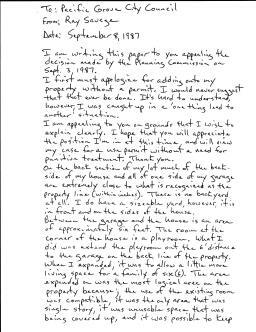 To: Pacific Grove City Council
From: Ray Savage
Date: September 8, 1987
I am writing this paper to you appealing the
decision made by the Planning Commission on
Sept. 3, 1987.
I first must apologize for adding onto my
property without a permit. I would never suggest
that that ever be done. It's hard to understand
however, I was caught up in a "one thing lead to
another" situation.
I am appealing to you on grounds that I wish to
explain clearly. I hope that you will appreciate
the position I'm in at this time, and will view
my case for a use permit without a need for
punitive treatment. Thank you.
On the back section of my lot much of the back-
side of my house and all of one side of my garage
are extremely close to what is recognized as the
property line (within inches). There is no back yard
at all. I do have a sizeable yard, however, it is
in front and on the sides of the house.
Between the garage and the house is an area
of approximately six feet. The room at the
corner of the house is a playroom. What I
did was extend the playroom out the 6' distance
to the garage on the back line of the property.
When I expanded, it was to allow a little more
living space for a family of six (6). The area
expanded on was the most logical area on the
property because; the use of the existing room
was compatible, it was the only area that was
single story, it was unusable space that was
being covered up, and it was possible to keep